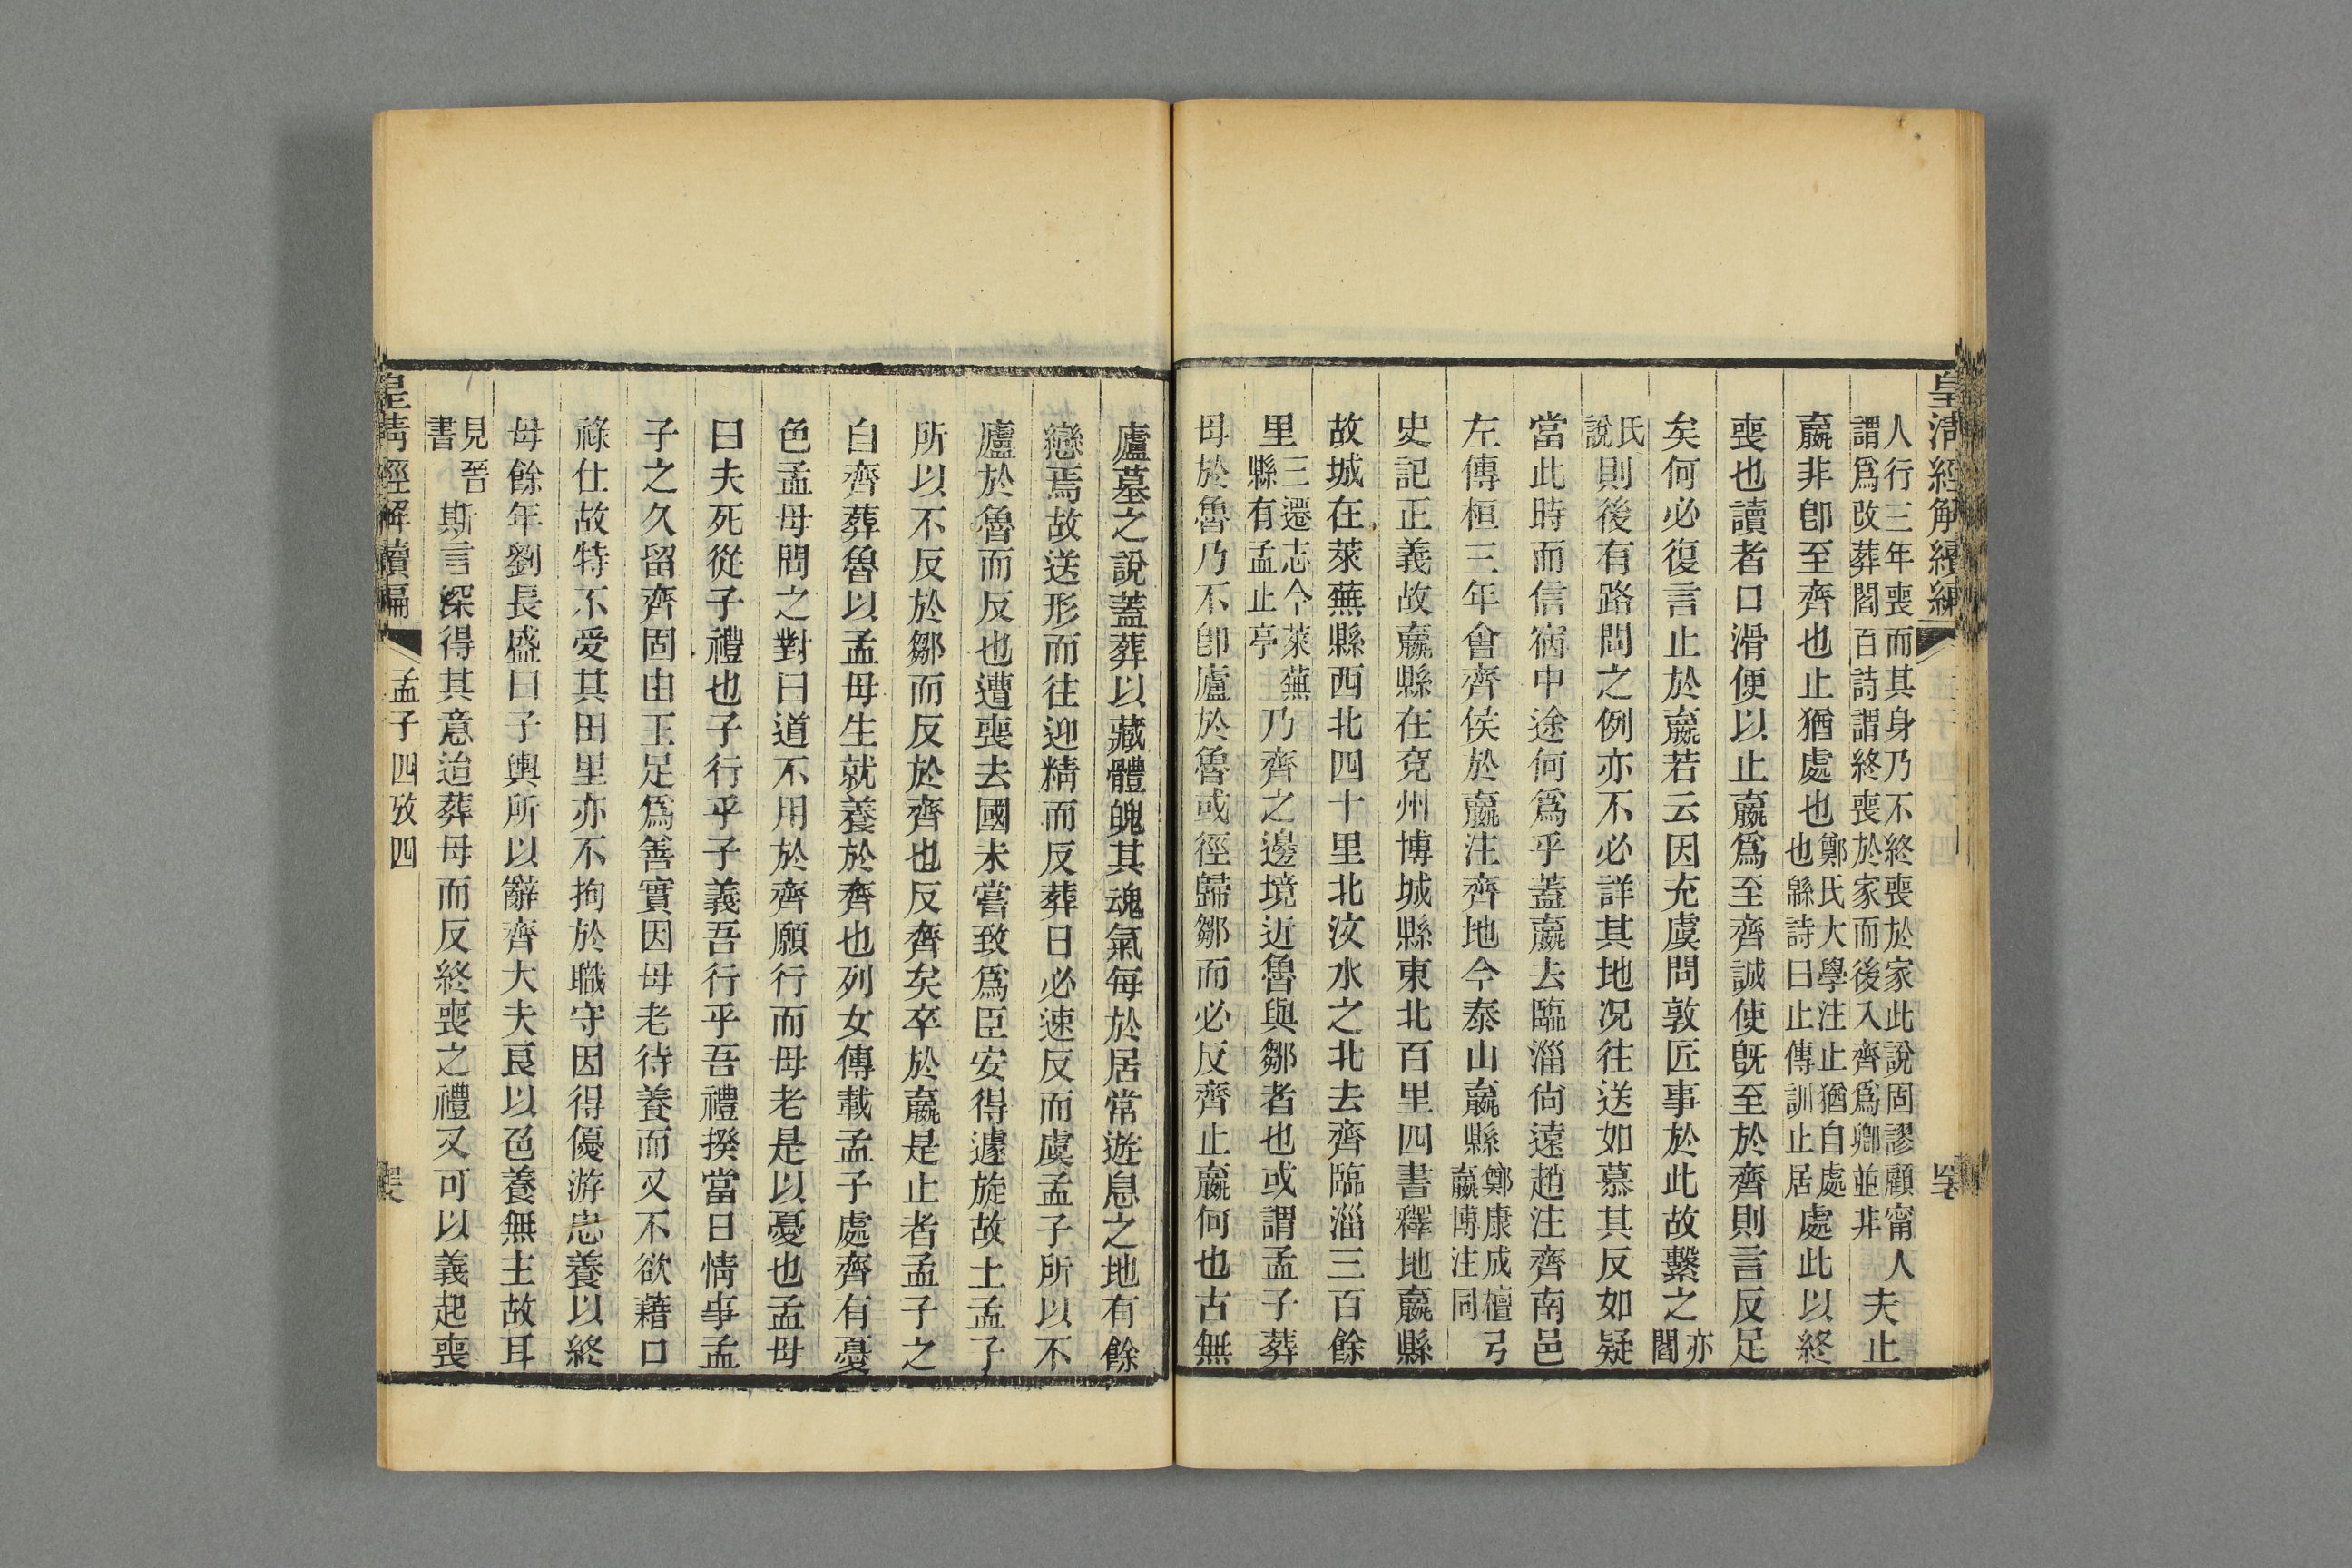 皇清經解續編
人行三年喪而其身乃不終喪於家此說固謬顧甯人
謂爲改葬閻百詩謂終喪於家而後入齊爲卿並非夫止
嬴非卽至齊也止猶處也鄭氏大學注止猶自處
也緜詩曰止傳訓止居處此以終
喪也讀者口滑便以止嬴爲至齊誠使旣至於齊則言反足
矣何必復言止於嬴若云因充虞問敦匠事於此故繫之亦
閻
氏
說則後有路問之例亦不必詳其地况往送如慕其反如疑
當此時而信宿中途何爲乎蓋嬴去臨淄尙遠趙注齊南邑
左傳桓三年會齊侯於嬴注齊地今泰山嬴縣鄭康成檀弓
嬴博注同
史記正義故嬴縣在兗州博城縣東北百里四書釋地嬴縣
故城在萊蕪縣西北四十里北汶水之北去齊臨淄三百餘
里三遷志今萊蕪
縣有孟止亭乃齊之邊境近魯與鄒者也或謂孟子葬
母於魯乃不卽廬於魯或徑歸鄒而必反齊止嬴何也古無
廬墓之說蓋葬以藏體魄其魂氣每於居常遊息之地有餘
戀焉故送形而往迎精而反葬日必速反而虞孟子所以不
廬於魯而反也遭喪去國未嘗致爲臣安得遽旋故土孟子
所以不反於鄒而反於齊也反齊矣卒於嬴是止者孟子之
自齊葬魯以孟母生就養於齊也列女傳載孟子處齊有憂
色孟母問之對曰道不用於齊願行而母老是以憂也孟母
曰夫死從子禮也子行乎子義吾行乎吾禮揆當日情事孟
子之久留齊固由王足爲善實因母老待養而又不欲藉口
祿仕故特不受其田里亦不拘於職守因得優游忠養以終
母餘年劉長盛曰子輿所以辭齊大夫良以色養無主故耳
見晉
書斯言深得其意迨葬母而反終喪之禮又可以義起喪
皇清經解續編
孟子四攷四